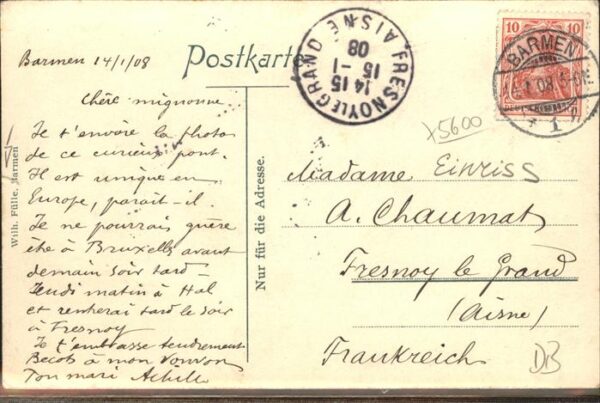 Barmen 14/1/08
Postkarte
Chère mignonne
Je t'envoie la photo
de ce curieux pont.
Il est unique en
Europe, parait-il.
Je ne pourrais guère
être à Bruxelles avant
demain soir tard -
Jeudi matin à Hal
et rentrerai tard le soir
à Fresnoy
Je t'embrasse tendrement
à mon
Ton mari Achille
Wilh. Fülle, Barmen
Nur für die Adresse.
FRESNOY LE GRAND
14 15
15 - 1
08
AISNE
10 10
BARMEN
1 08 5-6N
* 1
x5600
Einriss
Madame
A. Chaumat
Fresnoy le Grand
(Aisne)
Frankreich
DB